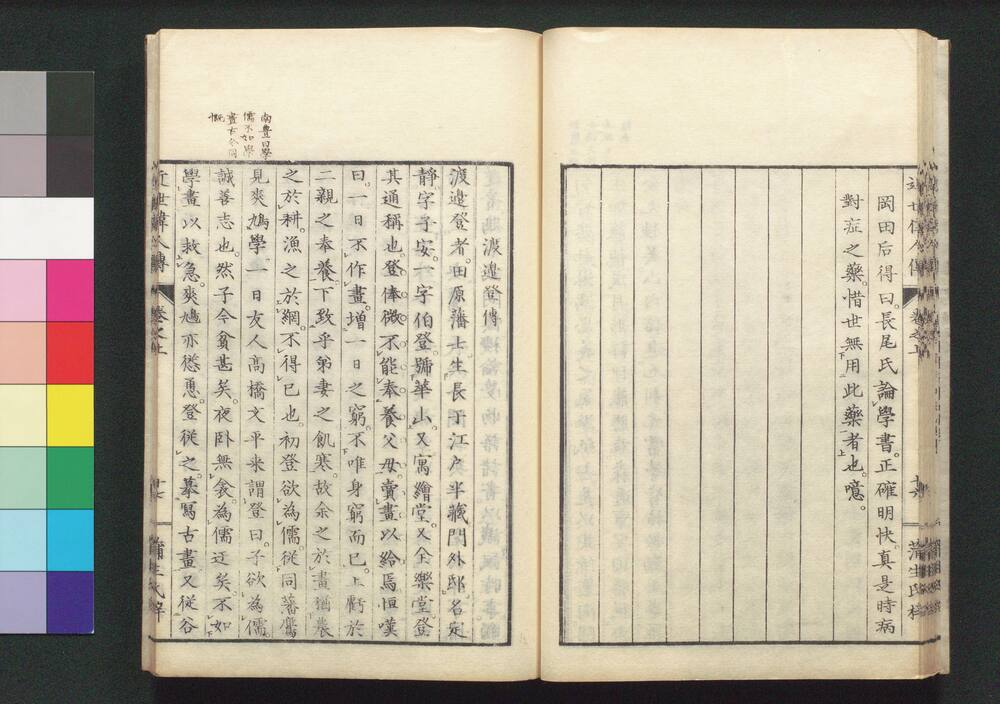 岡田后得曰。長尾氏論學書。正確明快。真是時病
對症之藥。惜世無用此藥者也。噫。
渡邉登傳
渡邉登者。田原藩士。生長于江户半藏門外邸。名定
靜。字子安。一字伯登。號華山。又寓繪堂。又全樂堂。登
其通稱也。登俸微不能奉養父母。賣畫以給焉。恒嘆
曰。一日不作畫。增一日之窮。不唯身窮而已。上虧於
二親之奉養。下致乎弟妻之飢寒。故余之於畫。猶農
之於耕。漁之於網。不得已也。初登欲為儒。從同藩鷹
見爽鳩學。一日友人高橋文平来。謂登曰。子欲為儒。
誠善志也。然子今貧甚矣。夜卧無衾。為儒迂矣。不如
學畫以救急。爽鳩亦慫慂。登從之。摹寫古畫。又從谷
近世偉人傳
卷之上
十七
蒲生氏梓
南豊曰學
儒不如學
畫古今同
慨